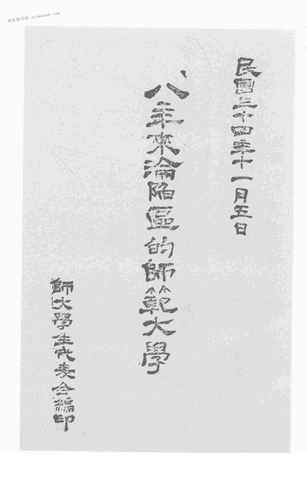 民國三十四年十一月五日
八年來淪陷區的師範大學
師大學生代表會編印